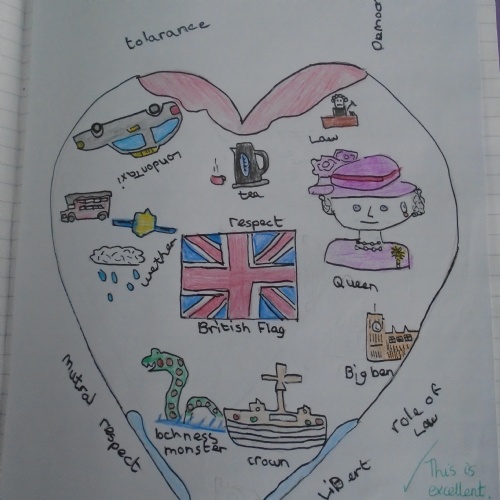 tolarance
Democ
Law
londontaxi
tea
respect
wether
Queen
British Flag
Big ben
mutral
respect
lochness
monster
crown
role of
Law
LiBert
This is
excellent